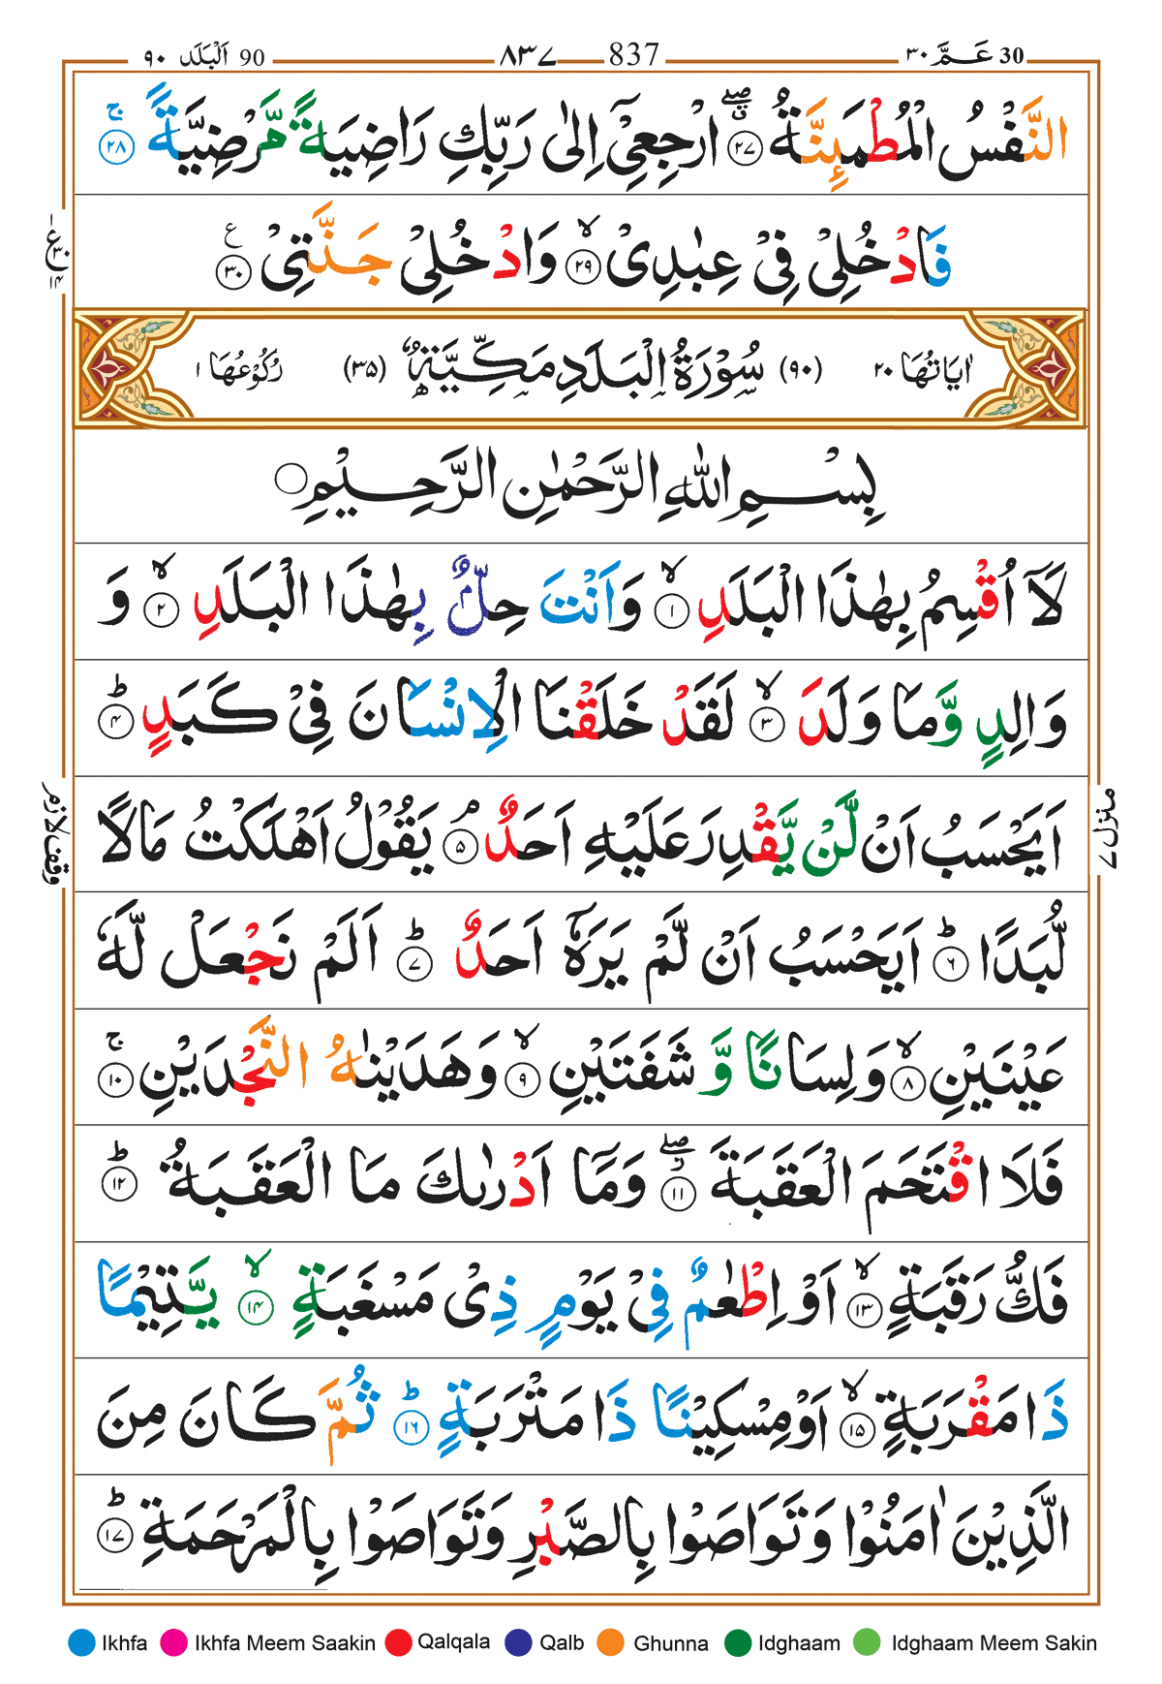 30 عَـمَّ ٣٠ 837 ٨٣٧ 90 اَلْبَلَد ٩٠
النَّفْسُ الْمُطْمَىِٕنَّةُ ۝٢٧ ارْجِعِیْۤ اِلٰی رَبِّكِ رَاضِیَةً مَّرْضِیَّةً ۝٢٨ ج
فَادْخُلِیْ فِیْ عِبٰدِیْ ۝٢٩ لا وَادْخُلِیْ جَنَّتِیْ ۝٣٠ ع
اٰیَاتُهَا ٢٠ (٩٠) سُوْرَةُ الْبَلَدِ مَكِّیَّةٌ (٣٥) رُكُوْعُهَا ١
بِسْمِ اللّٰهِ الرَّحْمٰنِ الرَّحِیْمِ
لَاۤ اُقْسِمُ بِهٰذَا الْبَلَدِ ۝١ لا وَاَنْتَ حِلٌّۢ بِهٰذَا الْبَلَدِ ۝٢ لا وَ
وَالِدٍ وَّمَا وَلَدَ ۝٣ لا لَقَدْ خَلَقْنَا الْاِنْسَانَ فِیْ كَبَدٍ ۝٤ ط
اَیَحْسَبُ اَنْ لَّنْ یَّقْدِرَ عَلَیْهِ اَحَدٌ ۝٥ م یَقُوْلُ اَهْلَكْتُ مَالًا
لُّبَدًا ۝٦ ط اَیَحْسَبُ اَنْ لَّمْ یَرَهٗۤ اَحَدٌ ۝٧ ط اَلَمْ نَجْعَلْ لَّهٗ
عَیْنَیْنِ ۝٨ لا وَلِسَانًا وَّ شَفَتَیْنِ ۝٩ لا وَهَدَیْنٰهُ النَّجْدَیْنِ ۝١٠ ج
فَلَا اقْتَحَمَ الْعَقَبَةَ ۝١١ وَمَاۤ اَدْرٰىكَ مَا الْعَقَبَةُ ۝١٢ ط
فَكُّ رَقَبَةٍ ۝١٣ لا اَوْ اِطْعٰمٌ فِیْ یَوْمٍ ذِیْ مَسْغَبَةٍ ۝١٤ لا یَّتِیْمًا
ذَا مَقْرَبَةٍ ۝١٥ لا اَوْ مِسْكِیْنًا ذَا مَتْرَبَةٍ ۝١٦ ط ثُمَّ كَانَ مِنَ
الَّذِیْنَ اٰمَنُوْا وَتَوَاصَوْا بِالصَّبْرِ وَتَوَاصَوْا بِالْمَرْحَمَةِ ۝١٧ ط
وقف لازم
منزل ٧
Ikhfa Ikhfa Meem Saakin Qalqala Qalb Ghunna Idghaam Idghaam Meem Sakin